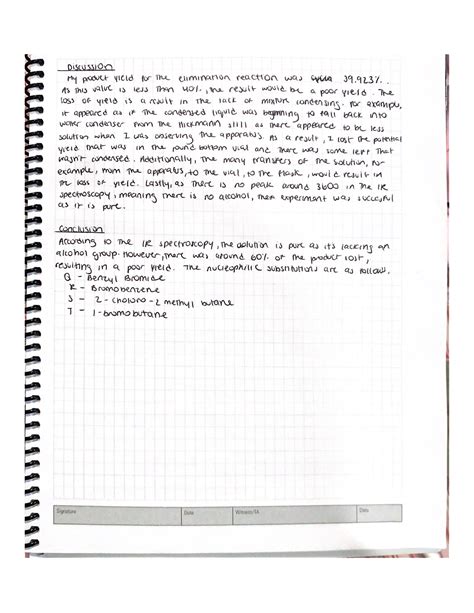 Discussion
My product yield for the elimination reaction was 39.923%.
As this value is less than 40%, the result would be a poor yield. The
loss of yield is a result in the lack of mixture condensing. For example,
it appeared as if the condensed liquid was beginning to fall back into
water condenser from the Hickmann still as there appeared to be less
solution when I was observing the apparatus. As a result, I lost the potential
yield that was in the round bottom vial and there was some left that
wasn't condensed. Additionally, the many transfers of the solution, for
example, from the apparatus, to the vial, to the flask, would result in
the loss of yield. Lastly, as there is no peak around 3600 in the IR
spectroscopy, meaning there is no alcohol, the experiment was succesful
as it is pure.
Conclusion
According to the IR spectroscopy, the solution is pure as its lacking an
alcohol group. However, there was around 60% of the product lost,
resulting in a poor yield. The nucleophilic substitutions are as follows.
Q - Benzyl Bromide
R - Bromobenzene
S - 2-chloro-2 methyl butane
T - 1-bromobutane
Signature
Date
Witness/TA
Date